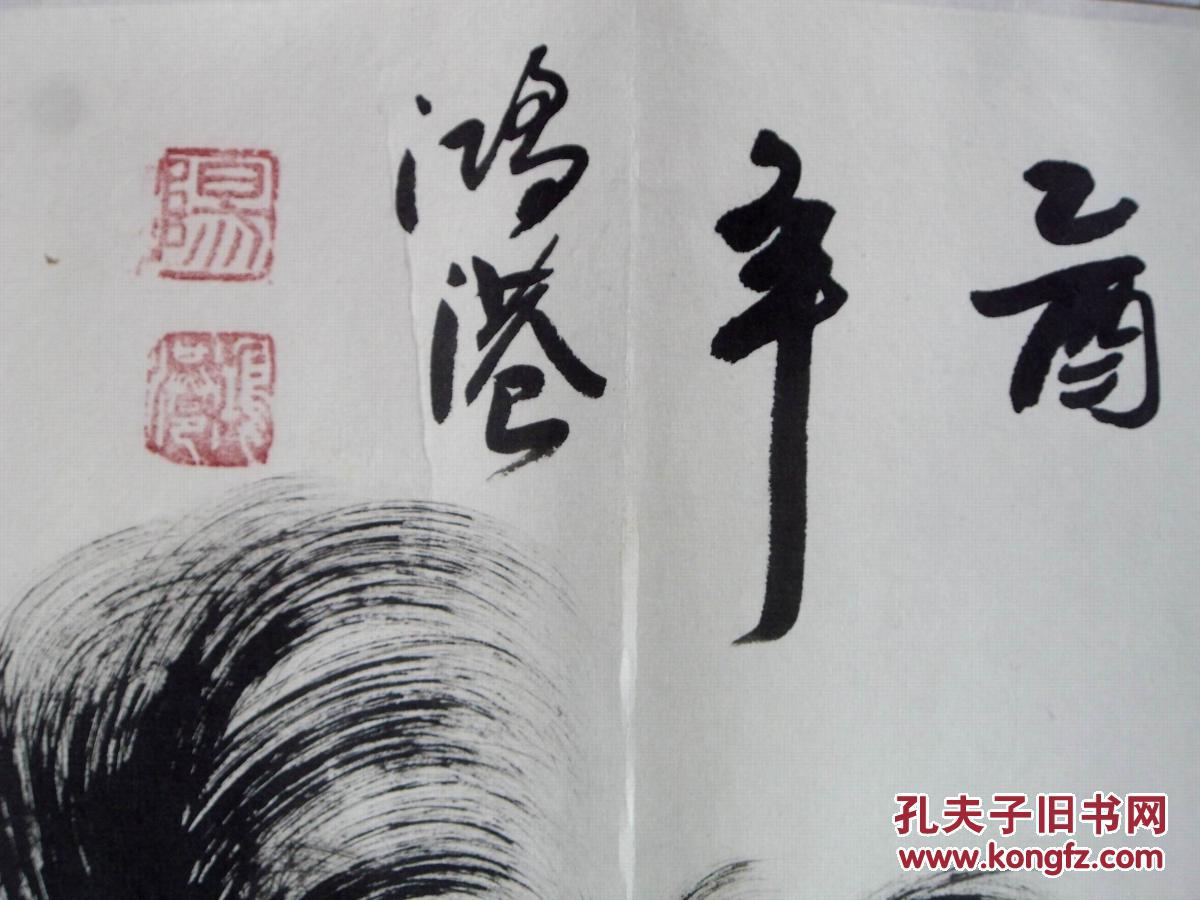 乙酉
年
鸿港
陽
孔夫子旧书网
www.kongfz.com